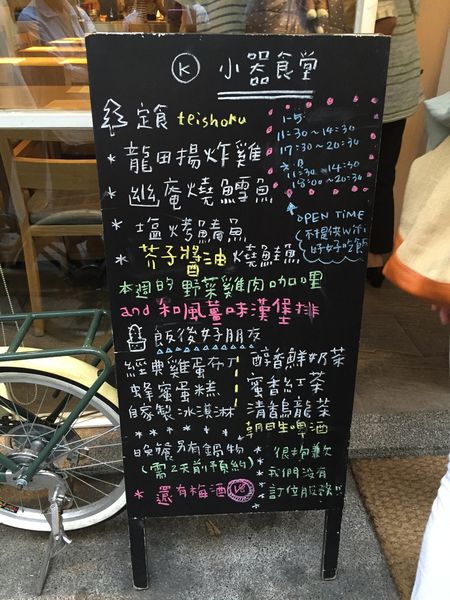 K 小器食堂
定食 teishoku
* 龍田揚炸雞
* 幽庵燒鱈魚
* 塩烤鯖魚
* 芥子醬油燒鮭魚
本週的 野菜雞肉咖哩
and 和風薑味漢堡排
1-5
11:30~14:30
17:30~20:30
六.日
11:30~14:40
18:00~20:30
OPEN TIME
不提供wifi
好好吃飯
飯後好朋友
經典雞蛋布丁
蜂蜜蛋糕
自家製冰淇淋
醇香鮮奶茶
蜜香紅茶
清香烏龍茶
朝日生啤酒
晚餐另有鍋物
(需2天前預約)
* 還有梅酒
* 很抱歉
我們沒有
訂位服務!!